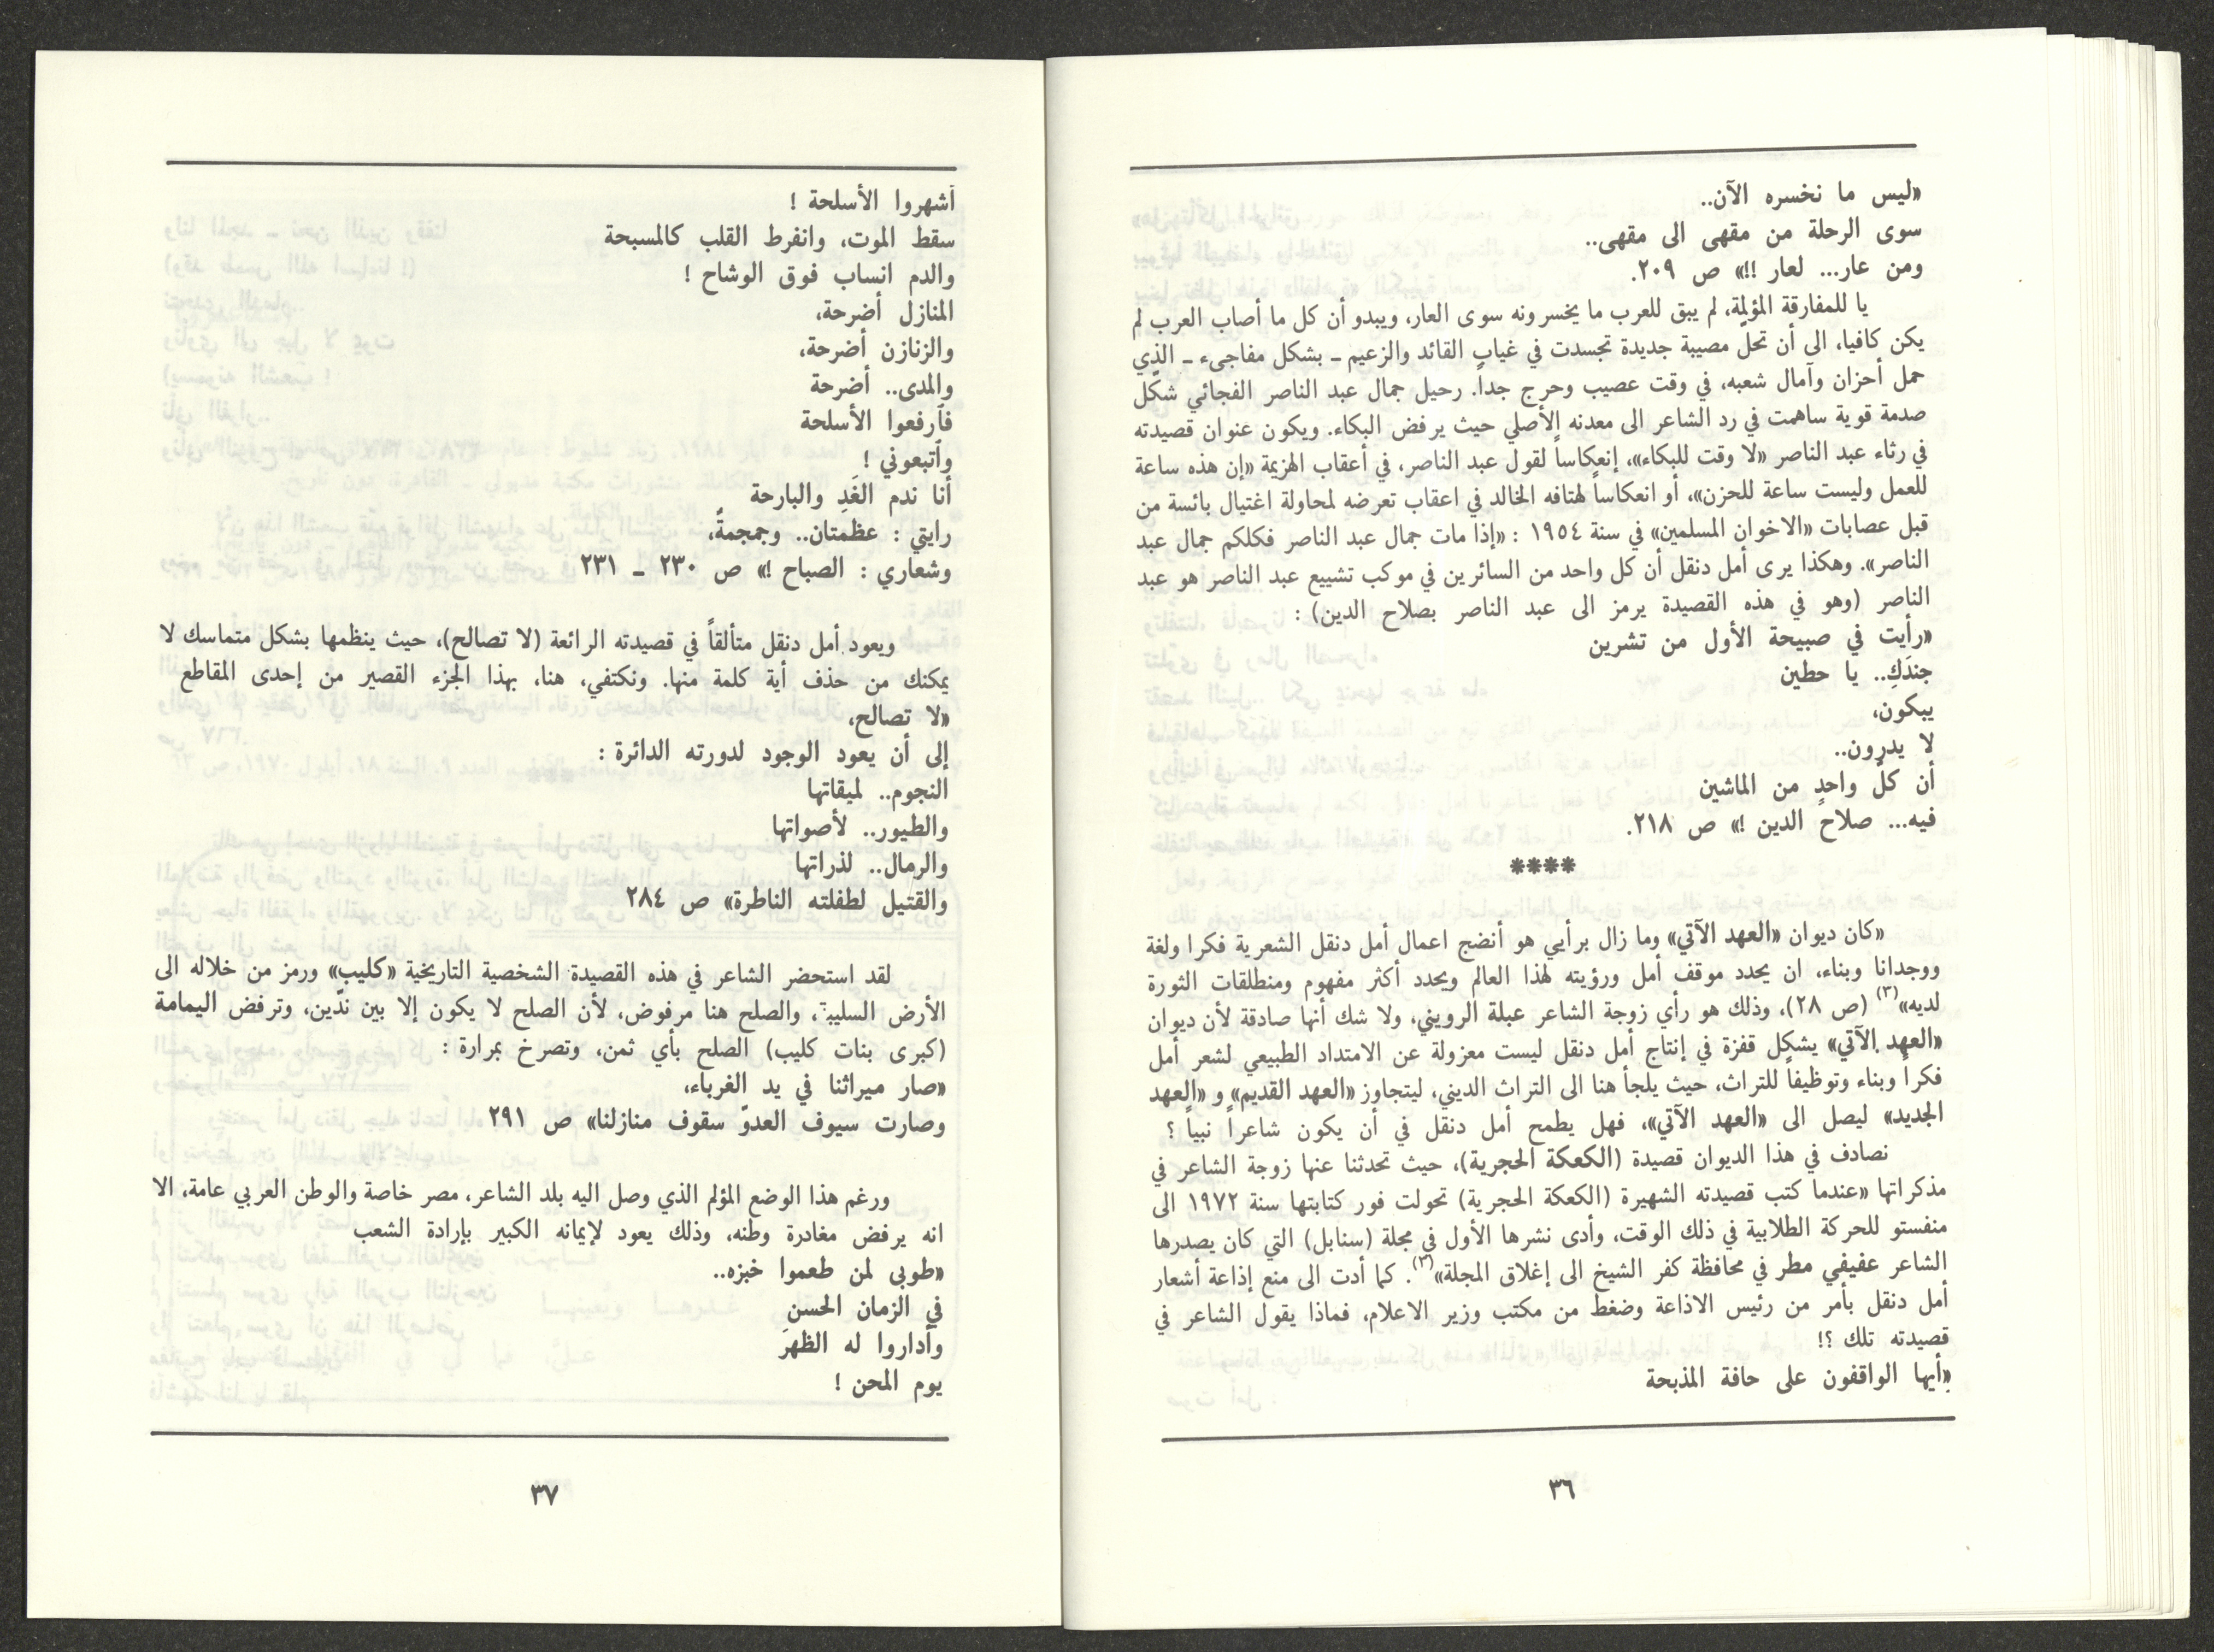 «ليس ما نخسره الآن..
سوى الرحلة من مقهى الى مقهى..
ومن عار... لعار !!» ص ٢٠٩.
يا للمفارقة المؤلمة، لم يبق للعرب ما يخسرونه سوى العار، ويبدو أن كل ما أصاب العرب لم
يكن كافيا، الى أن تحلّ مصيبة جديدة تجسدت في غياب القائد والزعيم ـ بشكل مفاجىء ـ الذي
حمل أحزان وآمال شعبه، في وقت عصيب وحرج جداً. رحيل جمال عبد الناصر الفجائي شكّل
صدمة قوية ساهمت في رد الشاعر الى معدنه الأصلي حيث يرفض البكاء. ويكون عنوان قصيدته
في رثاء عبد الناصر «لا وقت للبكاء»، إنعكاساً لقول عبد الناصر، في أعقاب الهزيمة «إن هذه ساعة
للعمل وليست ساعة للحزن»، أو انعكاساً لهتافه الخالد في اعقاب تعرضه لمحاولة اغتيال بائسة من
قبل عصابات «الاخوان المسلمين» في سنة ١٩٥٤ : «إذا مات جمال عبد الناصر فكلكم جمال عبد
الناصر». وهكذا يرى أمل دنقل أن كل واحد من السائرين في موكب تشييع عبد الناصر هو عبد
الناصر (وهو في هذه القصيدة يرمز الى عبد الناصر بصلاح الدين) :
«رأيت في صبيحة الأول من تشرين
جندَكِ.. يا حطين
يبكون،
لا يدرون..
أن كلّ واحدٍ من الماشين
فيه... صلاحُ الدين !» ص ٢١٨.
****
«كان ديوان «العهد الآتي» وما زال برأيي هو أنضج اعمال أمل دنقل الشعرية فكرا ولغة
ووجدانا وبناء، ان يحدد موقف أمل ورؤيته لهذا العالم ويحدد أكثر مفهوم ومنطلقات الثورة
لديه»(٣) (ص ٢٨)، وذلك هو رأي زوجة الشاعر عبلة الرويني، ولا شك أنها صادقة لأن ديوان
«العهد الآتي» يشكل قفزة في إنتاج أمل دنقل ليست معزولة عن الامتداد الطبيعي لشعر أمل
فكراً وبناء وتوظيفاً للتراث، حيث يلجأ هنا الى التراث الديني، ليتجاوز «العهد القديم» و «العهد
الجديد» ليصل الى «العهد الآتي»، فهل يطمح أمل دنقل في أن يكون شاعراً نبياً ؟
نصادف في هذا الديوان قصيدة (الكعكة الحجرية)، حيث تحدثنا عنها زوجة الشاعر في
مذكراتها «عندما كتب قصيدته الشهيرة (الكعكة الحجرية) تحولت فور كتابتها سنة ١٩٧٢ الى
منفستو للحركة الطلابية في ذلك الوقت، وأدى نشرها الأول في مجلة (سنابل) التي كان يصدرها
الشاعر عفيفي مطر في محافظة كفر الشيخ الى إغلاق المجلة»(٣). كما أدت الى منع إذاعة أشعار
أمل دنقل بأمر من رئيس الاذاعة وضغط من مكتب وزير الاعلام، فماذا يقول الشاعر في
قصيدته تلك ؟!
«أيها الواقفون على حافة المذبحة
٣٦
أشهروا الأسلحة !
سقط الموت، وانفرط القلب كالمسبحة
والدم انساب فوق الوشاح !
المنازل أضرحة،
والزنازن أضرحة،
والمدى.. أضرحة
فارفعوا الأسلحة
واتبعوني !
أنا ندم الغَدِ والبارحة
رايتي : عظمتان.. وجمجمةٌ،
وشعاري : الصباح !» ص ٢٣٠ ـ ٢٣١
ويعود أمل دنقل متألقاً في قصيدته الرائعة (لا تصالح)، حيث ينظمها بشكل متماسك لا
يمكنك من حذف أية كلمة منها. ونكتفي، هنا، بهذا الجزء القصير من إحدى المقاطع
«لا تصالح،
إلى أن يعود الوجود لدورته الدائرة :
النجوم.. لميقاتها
والطيور.. لأصواتها
والرمال.. لذراتها
والقتيل لطفلته الناظرة» ص ٢٨٤
لقد استحضر الشاعر في هذه القصيدة الشخصية التاريخية «كليب» ورمز من خلاله الى
الأرض السليبة، والصلح هنا مرفوض، لأن الصلح لا يكون إلا بين ندّين، وترفض اليمامة
(كبرى بنات كليب) الصلح بأي ثمن، وتصرخ بمرارة :
«صار ميراثنا في يد الغرباء،
وصارت سيوف العدوّ سقوف منازلنا» ص ٢٩١
ورغم هذا الوضع المؤلم الذي وصل اليه بلد الشاعر، مصر خاصة والوطن العربي عامة، الا
انه يرفض مغادرة وطنه، وذلك يعود لإيمانه الكبير بإرادة الشعب
«طوبى لمن طعموا خبزه..
في الزمان الحسن
وأداروا له الظهرَ
يوم المحن !
٣٧